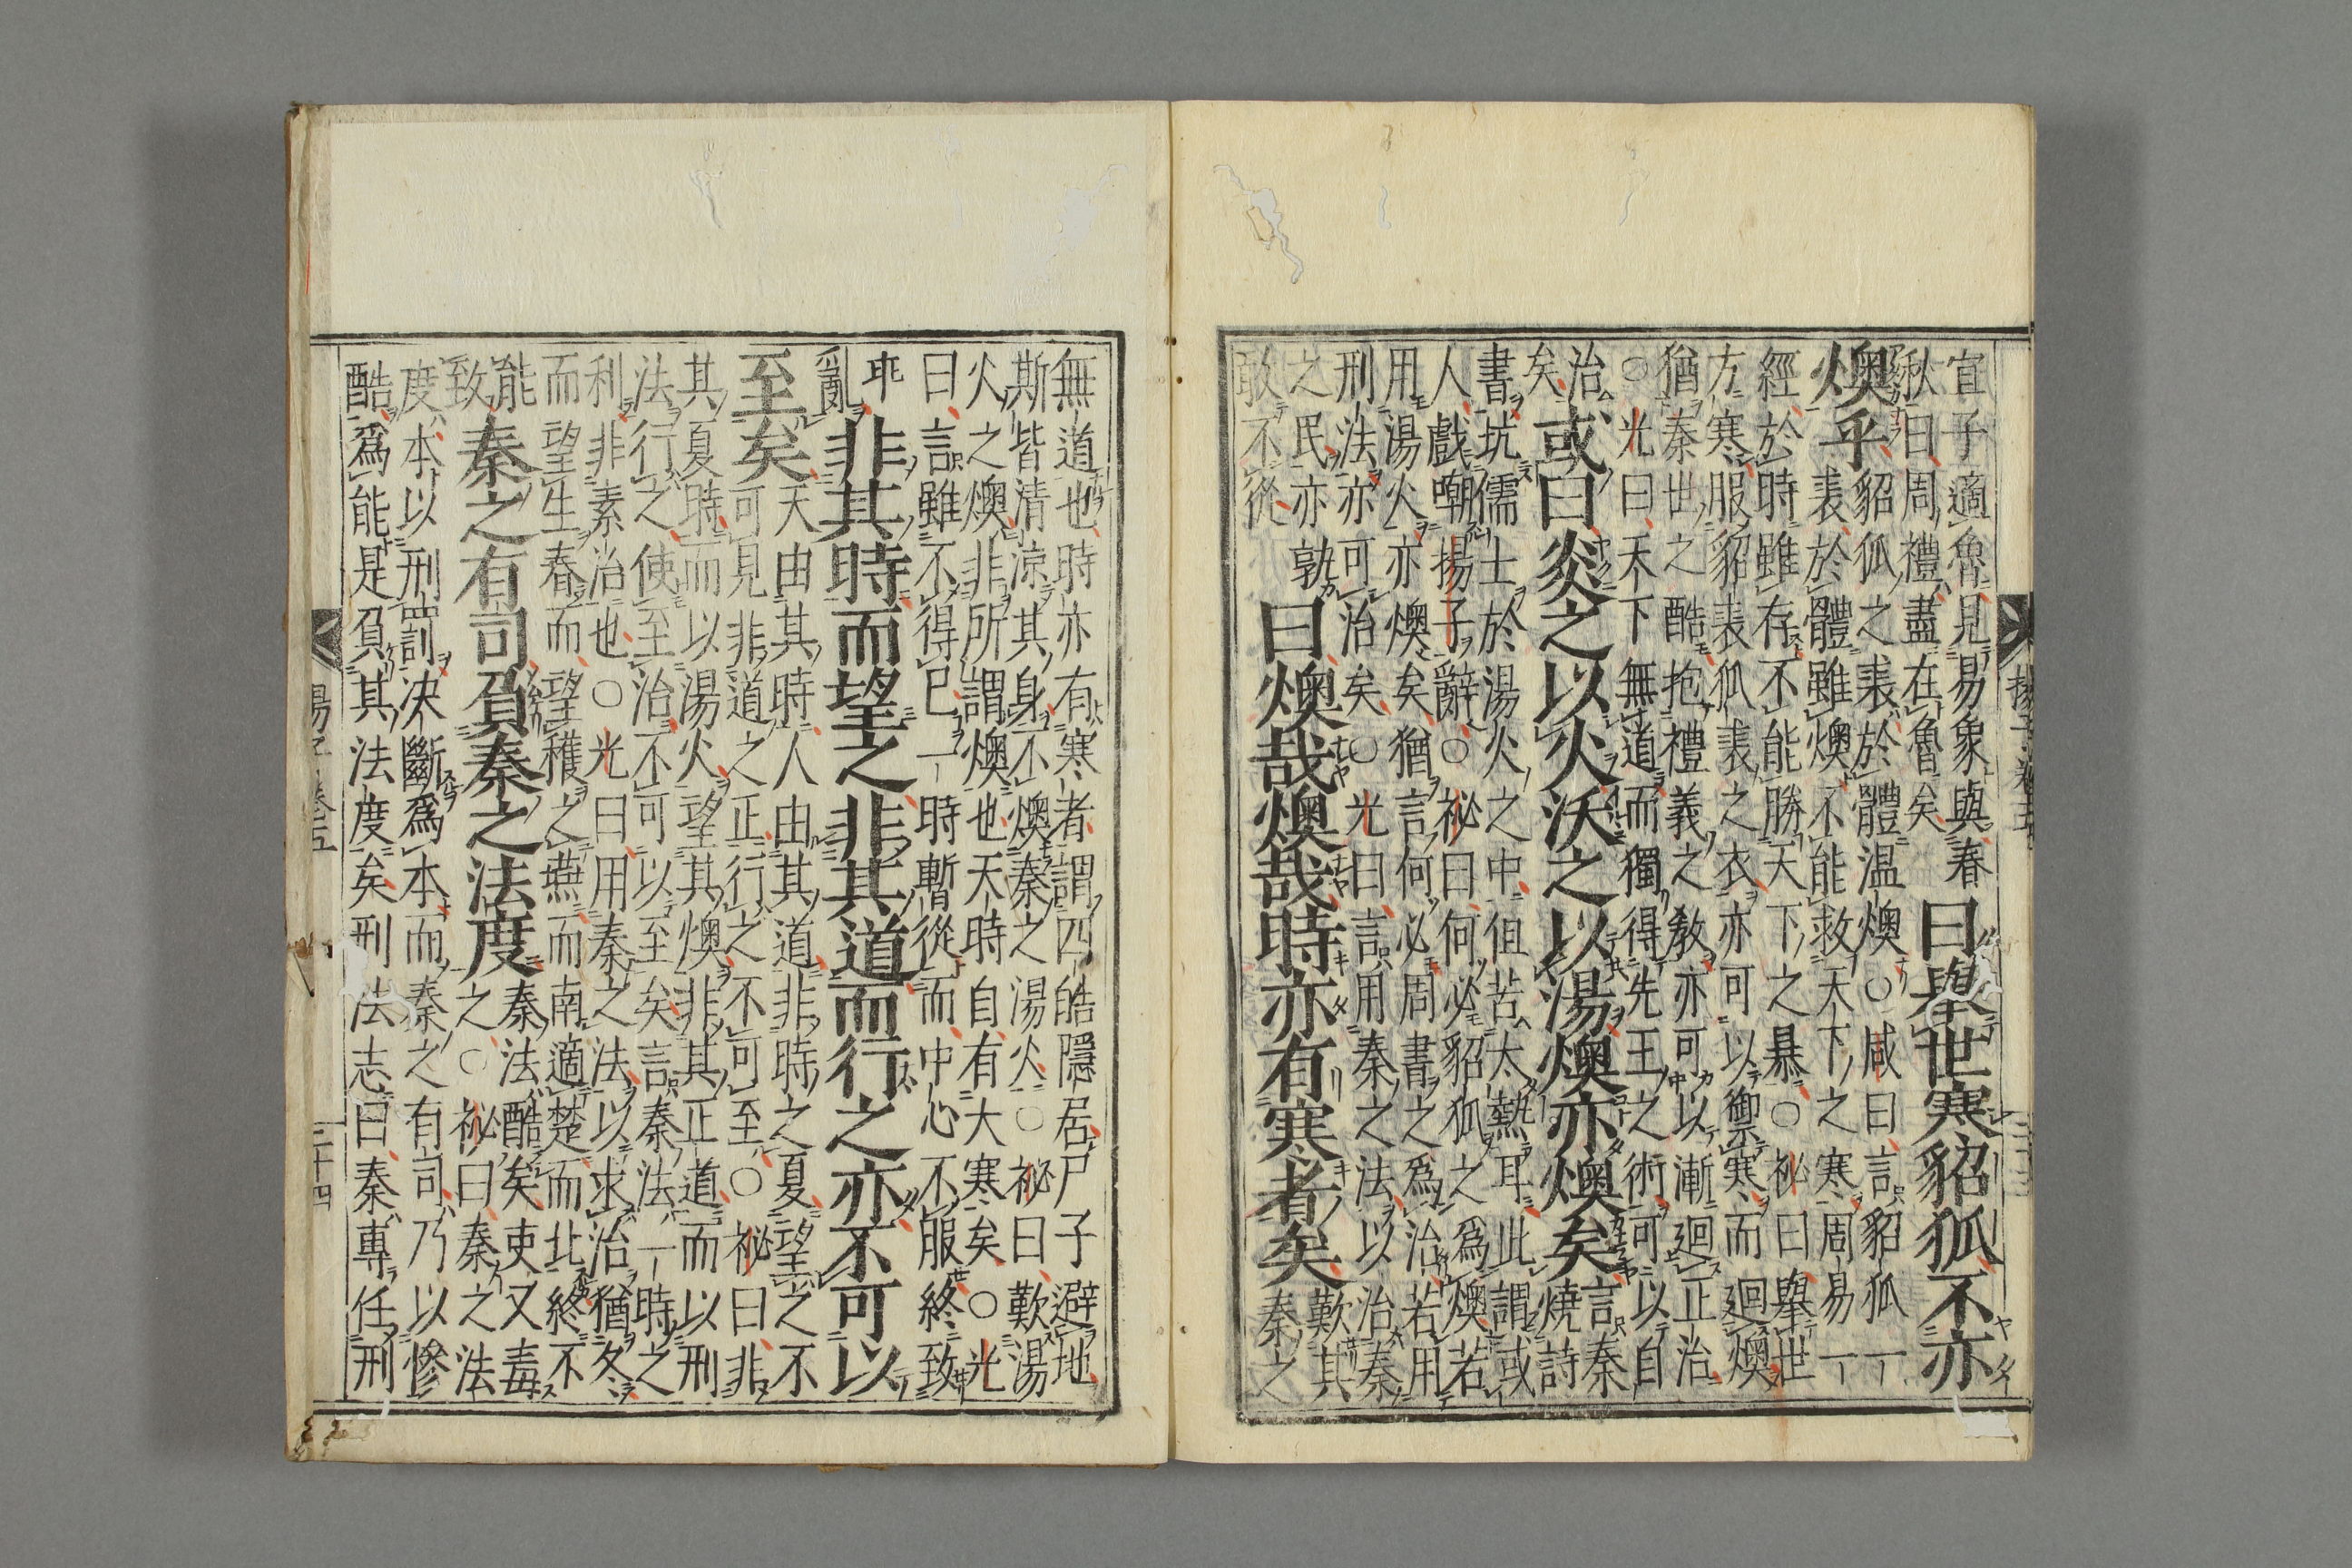 宜子適魯見易象與春
秋曰周禮盡在魯矣
曰舉世寒貂狐不亦
燠乎
貂狐之裘於體温燠○咸曰言貂狐一
裘於體雖燠不能救天下之寒周易一
經於時雖存不能勝天下之暴○祕曰舉世
方寒服貂裘狐裘之衣亦可以禦寒而迴燠
猶秦世之酷抱禮義之敎亦可以漸迴正治
○光曰天下無道而獨得先王之術可以自
治
矣
或曰炎之以火沃之以湯燠亦燠矣
言秦
燒詩
書坑儒士於湯火之中但苦太熱耳此謂或
人戲嘲揚子辭○祕曰何必貂狐之爲燠若
用湯火亦燠矣猶言何必周書之爲治若用
刑法亦可治矣○光曰言用秦之法以治秦
之民亦孰
敢不從
曰燠哉燠哉時亦有寒者矣
歎其
秦之
無道也時亦有寒者謂四皓隱居尸子避地
斯皆清涼其身不燠秦之湯火○祕曰歎湯
火之燠非所謂燠也天時自有大寒矣○光
曰言雖不得已一時暫從而中心不服終致
乖
亂
非其時而望之非其道而行之亦不可以
至矣
天由其時人由其道非時之夏望之不
可見非道之正行之不可至○祕曰非
其夏時而以湯火望其燠非其正道而以刑
法行之使至治不可以至矣言秦法一時之
利非素治也○光曰用秦之法以求治猶冬
而望生春而望穫之燕而南適楚而北終不
能
致
秦之有司負秦之法度
秦法酷矣吏又毒
之○祕曰秦之法
度本以刑罰決斷爲本而秦之有司乃以慘
酷爲能是負其法度矣刑法志曰秦專任刑